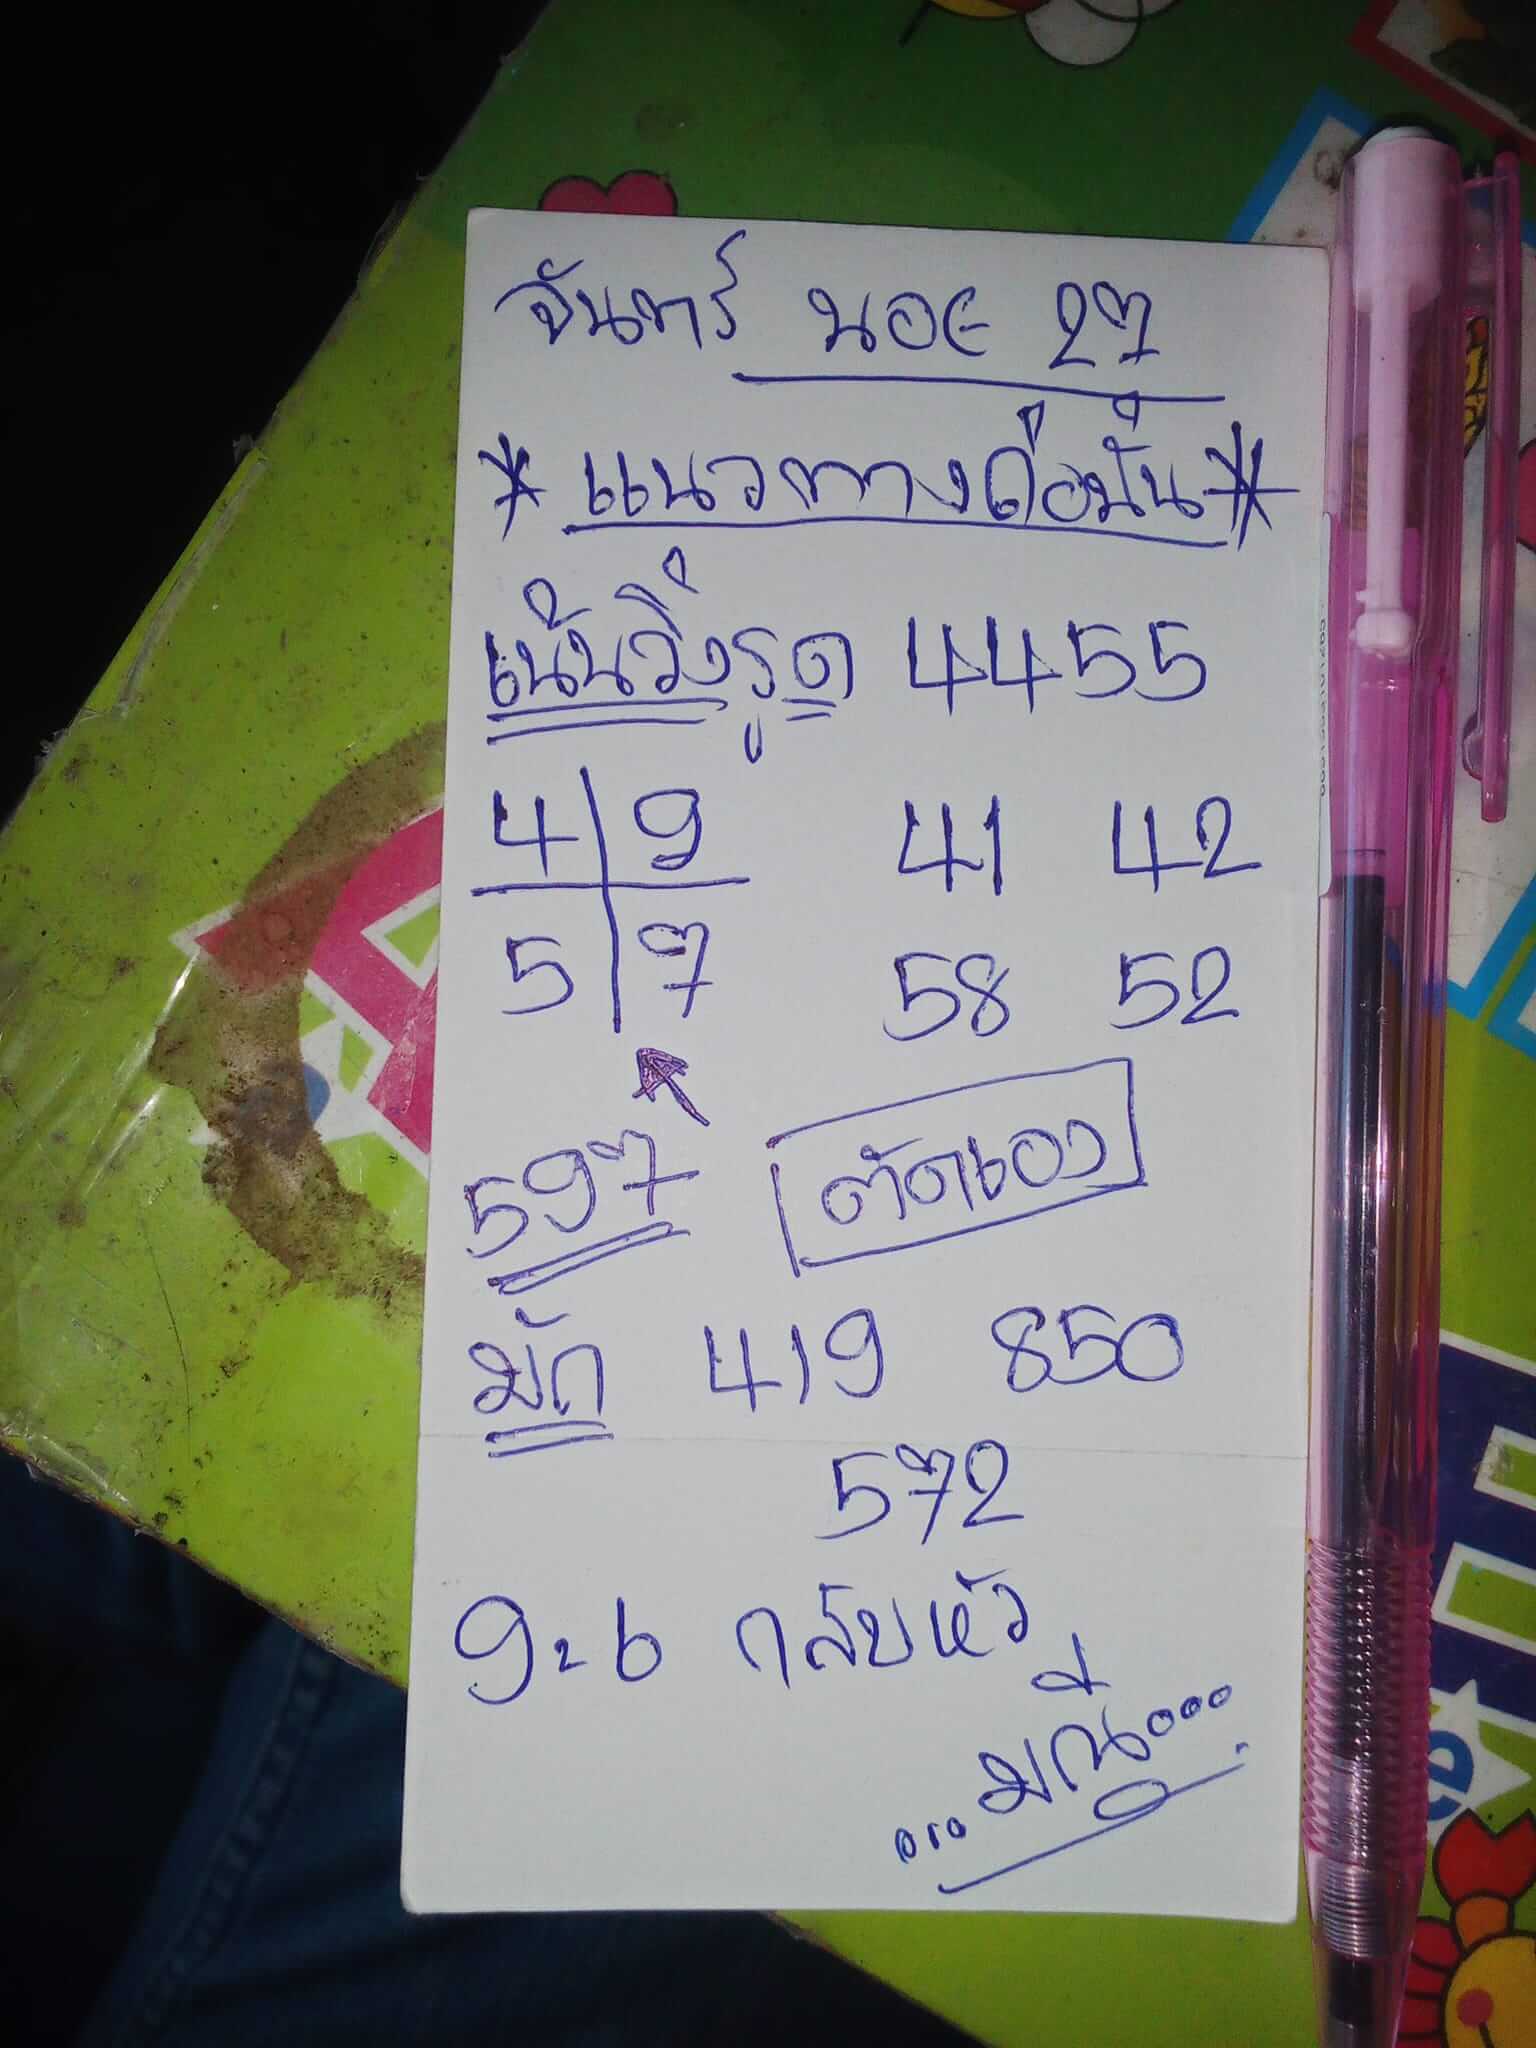 จันทร์ นอย 27
* แนวทางถ่อมั่น *
เน้นวิ่งรูด 4455
4 | 9 41 42
5 | 7 58 52
597 ตัดเอง
มัก 419 850
572
9=6 กลับหัว
...มณี...